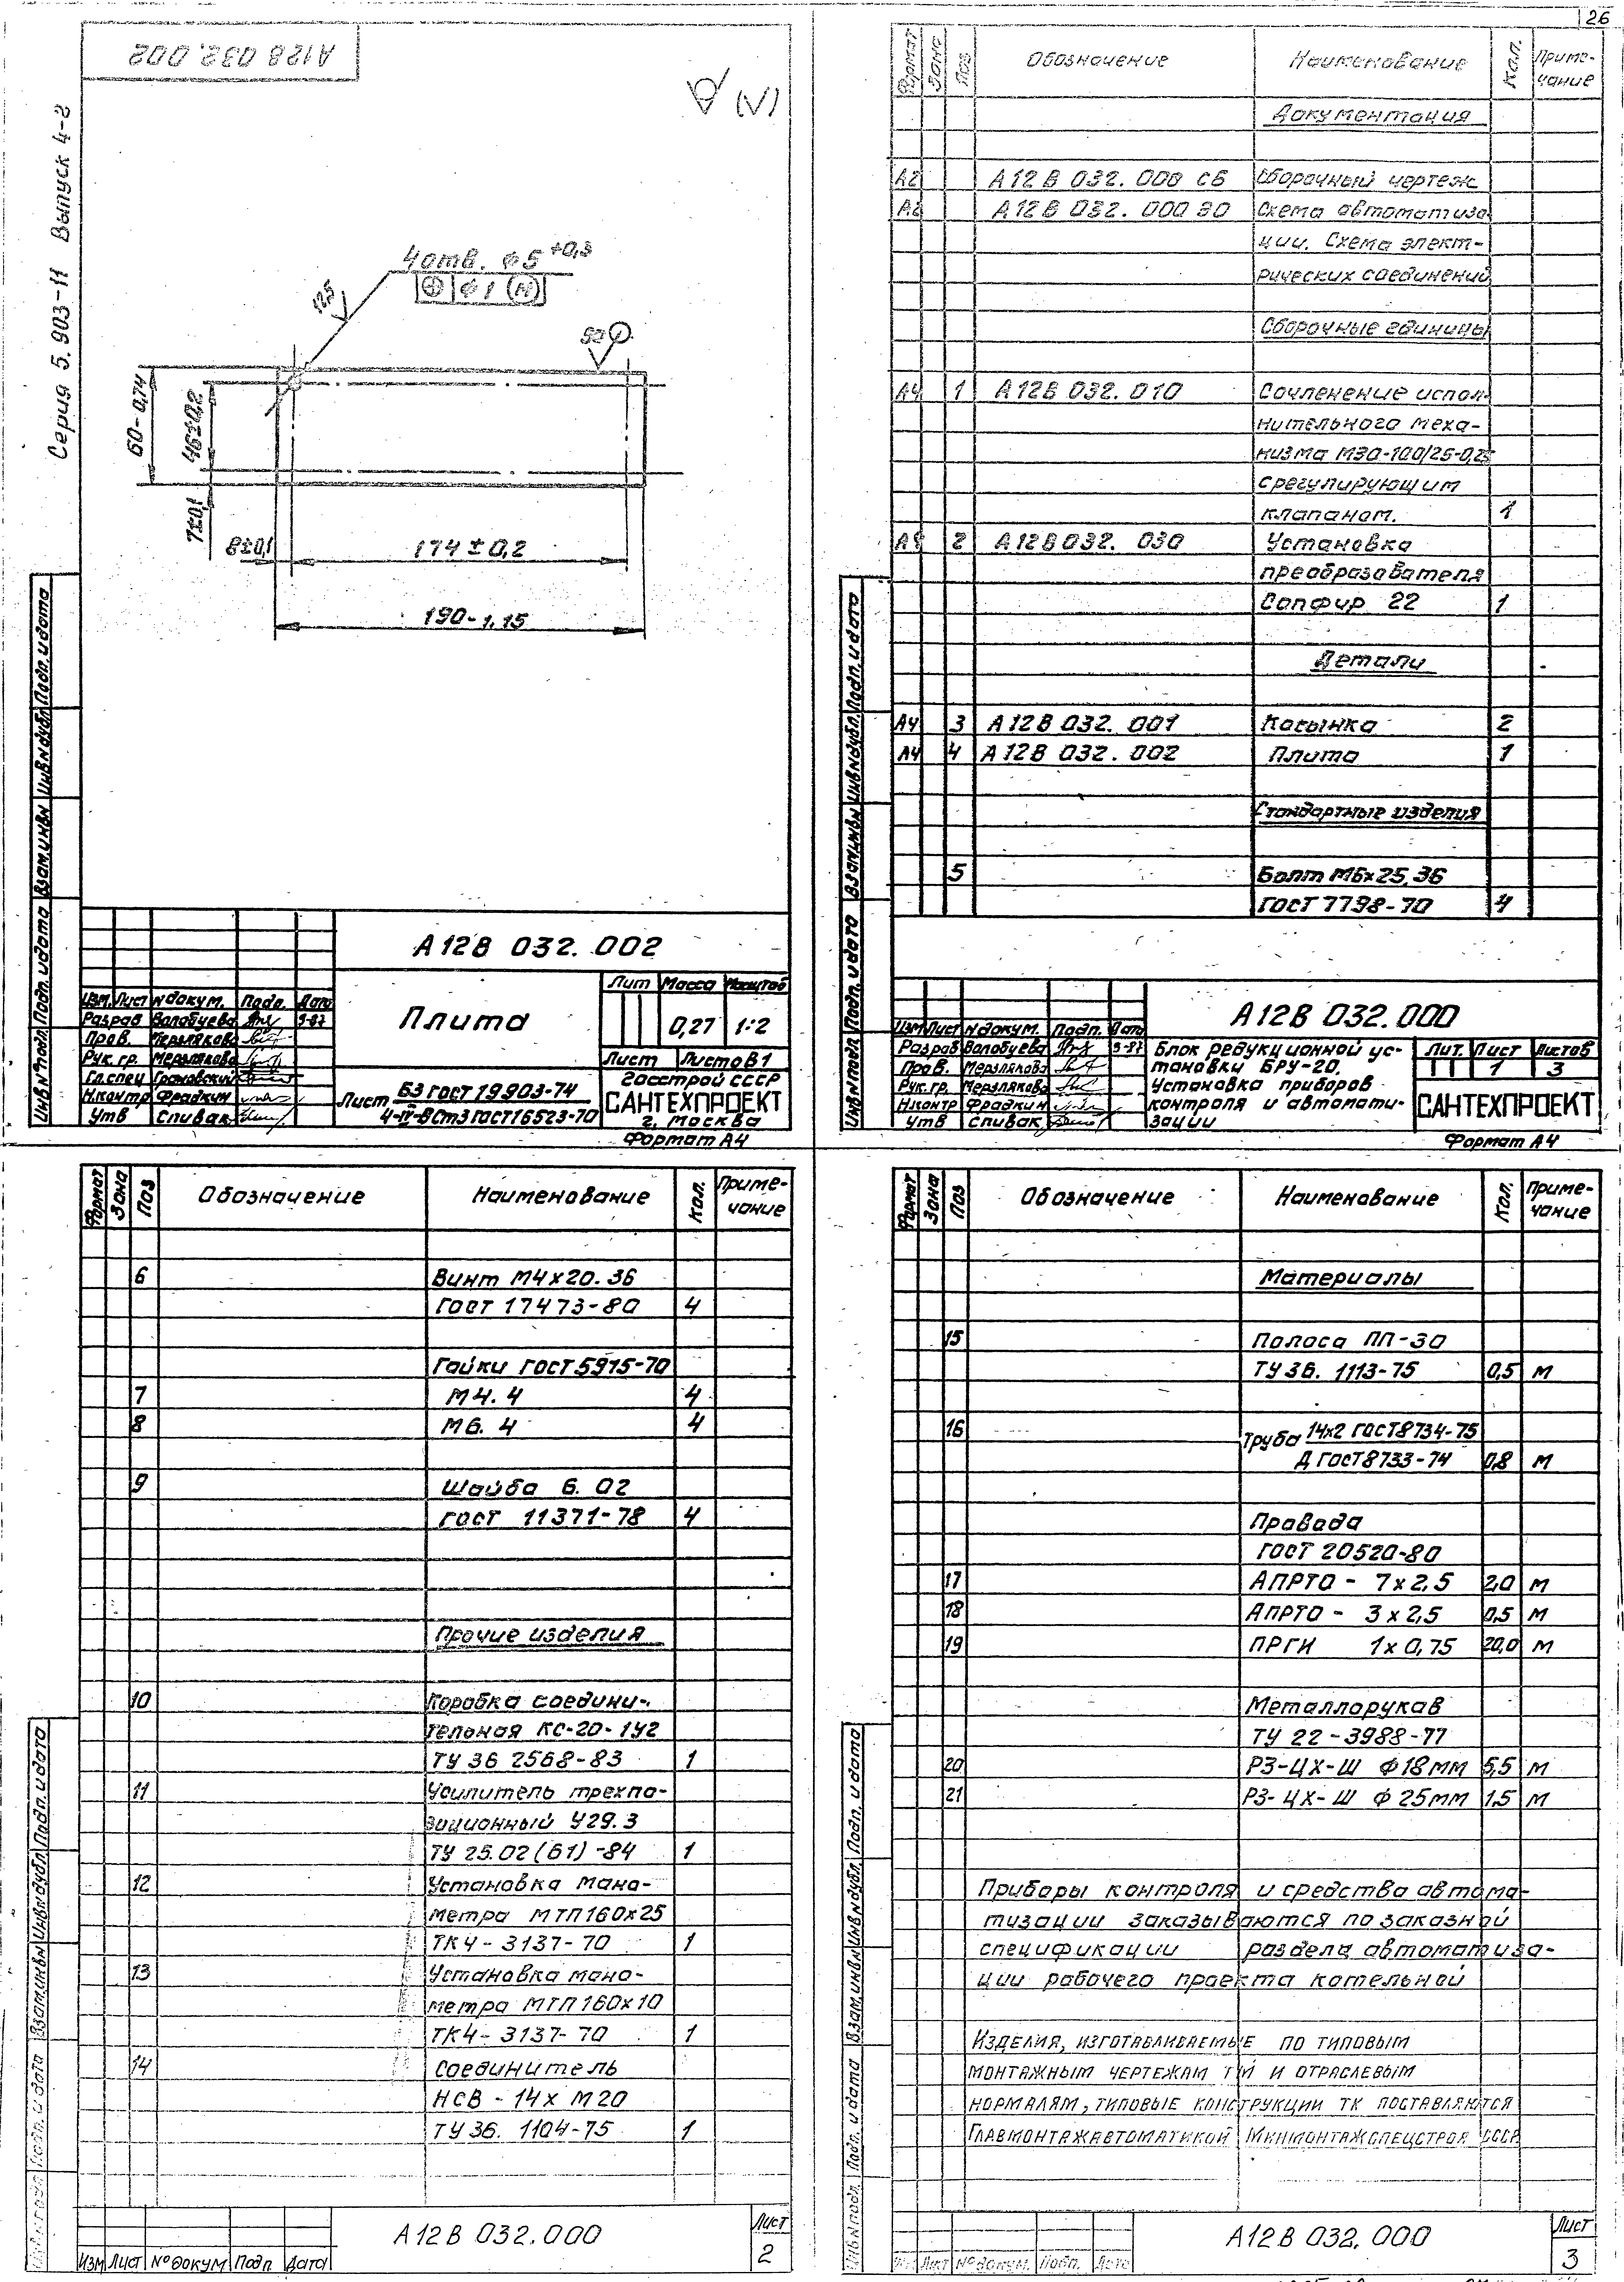 26
А12В 032.002
Серия 5.903-11 Выпуск 4-2
(√)
4 отв. ϕ5 +0,3
⌖ ϕ1 (М)
12,5
50
60-0,74
46±0,2
7±0,1
8±0,1
174±0,2
190-1,15
Инв N подл. Подп. и дата Взам.инв N Инв N дубл. Подп. и дата
А12В 032.002
Изм. Лист N докум. Подп. Дата
Разраб Волобуева 9-87
Пров. Мерзлякова
Рук. гр. Мерзлякова
Гл.спец Грановский
Н.контр Фрадкин
Утв Спивак
Плита
Лит Масса Масштаб
0,27 1:2
Лист Листов 1
Лист Б3 ГОСТ 19903-74
4-IV-ВСт3 ГОСТ 16523-70
Госстрой СССР
САНТЕХПРОЕКТ
г. Москва
Формат А4
Формат Зона Поз Обозначение Наименование Кол. Приме-
чание
Документация
А2 А12В 032.000 СБ Сборочный чертеж
А2 А12В 032.000 ЭО Схема автоматиза-
ции. Схема элект-
рических соединений
Сборочные единицы
А4 1 А12В 032.010 Сочленение испол-
нительного меха-
низма МЭО-100/25-0,25
с регулирующим
клапаном. 1
А4 2 А12В 032.030 Установка
преобразователя
Сапфир 22 1
Детали
А4 3 А12В 032.001 Косынка 2
А4 4 А12В 032.002 Плита 1
Стандартные изделия
5 Болт М6х25.36
ГОСТ 7798-70 4
Инв N подл. Подп. и дата Взам.инв N Инв N дубл. Подп. и дата
А12В 032.000
Изм Лист N докум. Подп. Дата
Разраб Волобуева 9-87
Пров. Мерзлякова
Рук.гр. Мерзлякова
Н.контр Фрадкин
Утв Спивак
Блок редукционной ус-
тановки БРУ-20.
Установка приборов
контроля и автомати-
зации
Лит. Лист Листов
1 3
САНТЕХПРОЕКТ
Формат А4
Формат Зона Поз Обозначение Наименование Кол. Приме-
чание
6 Винт М4х20.36
ГОСТ 17473-80 4
Гайки ГОСТ 5915-70
7 М4.4 4
8 М6.4 4
9 Шайба 6.02
ГОСТ 11371-78 4
Прочие изделия
10 Коробка соедини-
тельная КС-20-1У2
ТУ 36 2568-83 1
11 Усилитель трехпо-
зиционный У29.3
ТУ 25.02(61)-84 1
12 Установка мано-
метра МТП160х25
ТК4-3137-70 1
13 Установка мано-
метра МТП160х10
ТК4-3137-70 1
14 Соединитель
НСВ-14х М20
ТУ 36. 1104-75 1
Подп. и дата Взам.инв N Инв N дубл. Подп. и дата
Изм Лист № докум Подп Дата
А12В 032.000
Лист
2
Формат Зона Поз Обозначение Наименование Кол. Приме-
чание
Материалы
15 Полоса ПП-30
ТУ 36. 1113-75 0,5 м
16 Труба 14х2 ГОСТ 8734-75
Д ГОСТ 8733-74 0,8 м
Провода
ГОСТ 20520-80
17 АПРТО - 7х2,5 2,0 м
18 АПРТО - 3х2,5 0,5 м
19 ПРГИ 1х0,75 20,0 м
Металлорукав
ТУ 22-3988-77
20 РЗ-ЦХ-Ш ϕ18мм 5,5 м
21 РЗ-ЦХ-Ш ϕ25мм 1,5 м
Приборы контроля и средства автома-
тизации заказываются по заказной
спецификации раздела автоматиза-
ции рабочего проекта котельной
Изделия, изготавливаемые по типовым
монтажным чертежам ТМ и отраслевым
нормалям, типовые конструкции ТК поставляются
Главмонтажавтоматикой Минмонтажспецстроя СССР
Инв N подл. Подп. и дата Взам.инв N Инв N дубл. Подп. и дата
Лист № докум. Подп. Дата
А12В 032.000
Лист
3